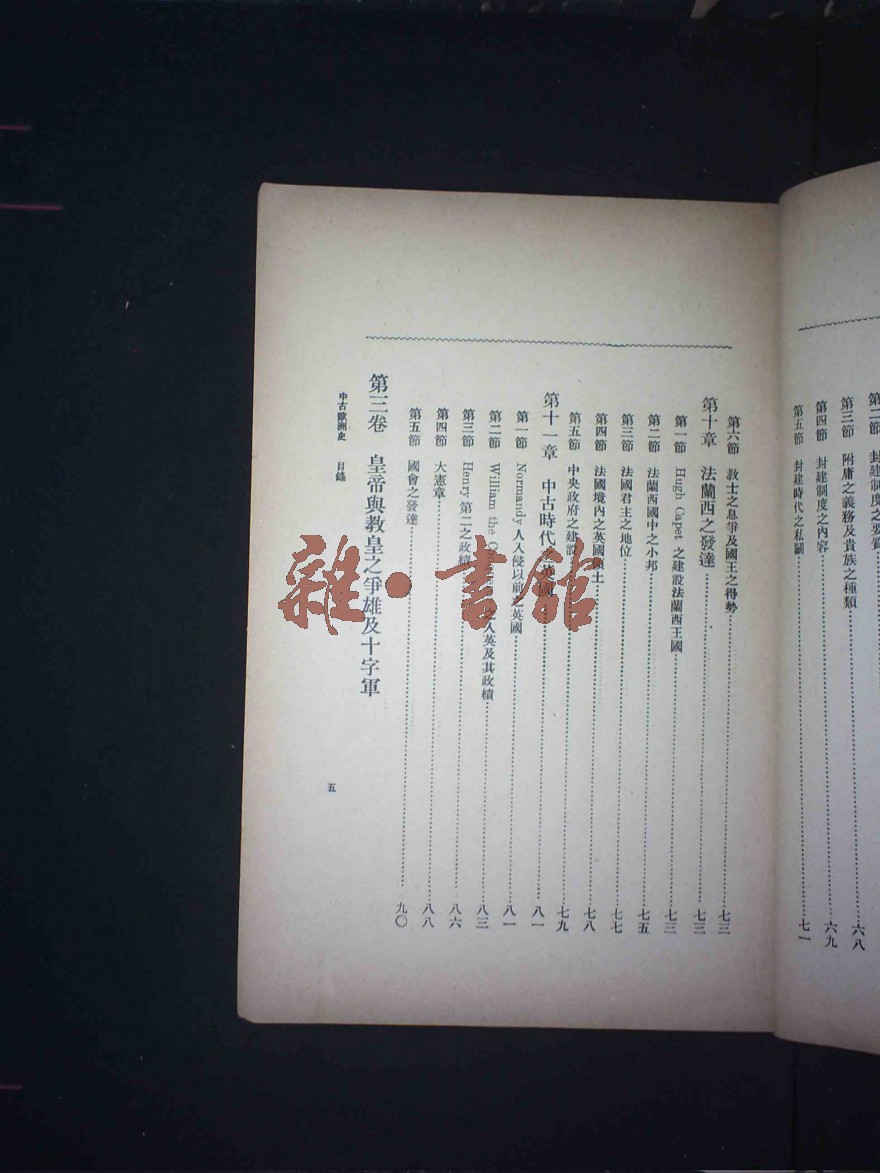 第二節 封建制度之要質
第三節 附庸之義務及貴族之種類 六八
第四節 封建制度之內容 六九
第五節 封建時代之私鬬 七一
第六節 教士之息爭及國王之得勢 七三
第十章 法蘭西之發達 七三
第一節 Hugh Capet 之建設法蘭西王國 七三
第二節 法蘭西國中之小邦 七五
第三節 法國君主之地位 七七
第四節 法國境內之英國領土 七八
第五節 中央政府之建設 七九
第十一章 中古時代之英國 八一
第一節 Normandy 人入侵以前之英國 八一
第二節 William the 之入英及其政績 八三
第三節 Henry 第二之政績 八六
第四節 大憲章 八八
第五節 國會之發達 九〇
第三卷 皇帝與教皇之爭雄及十字軍
中古歐洲史 目錄
五
雜·書館